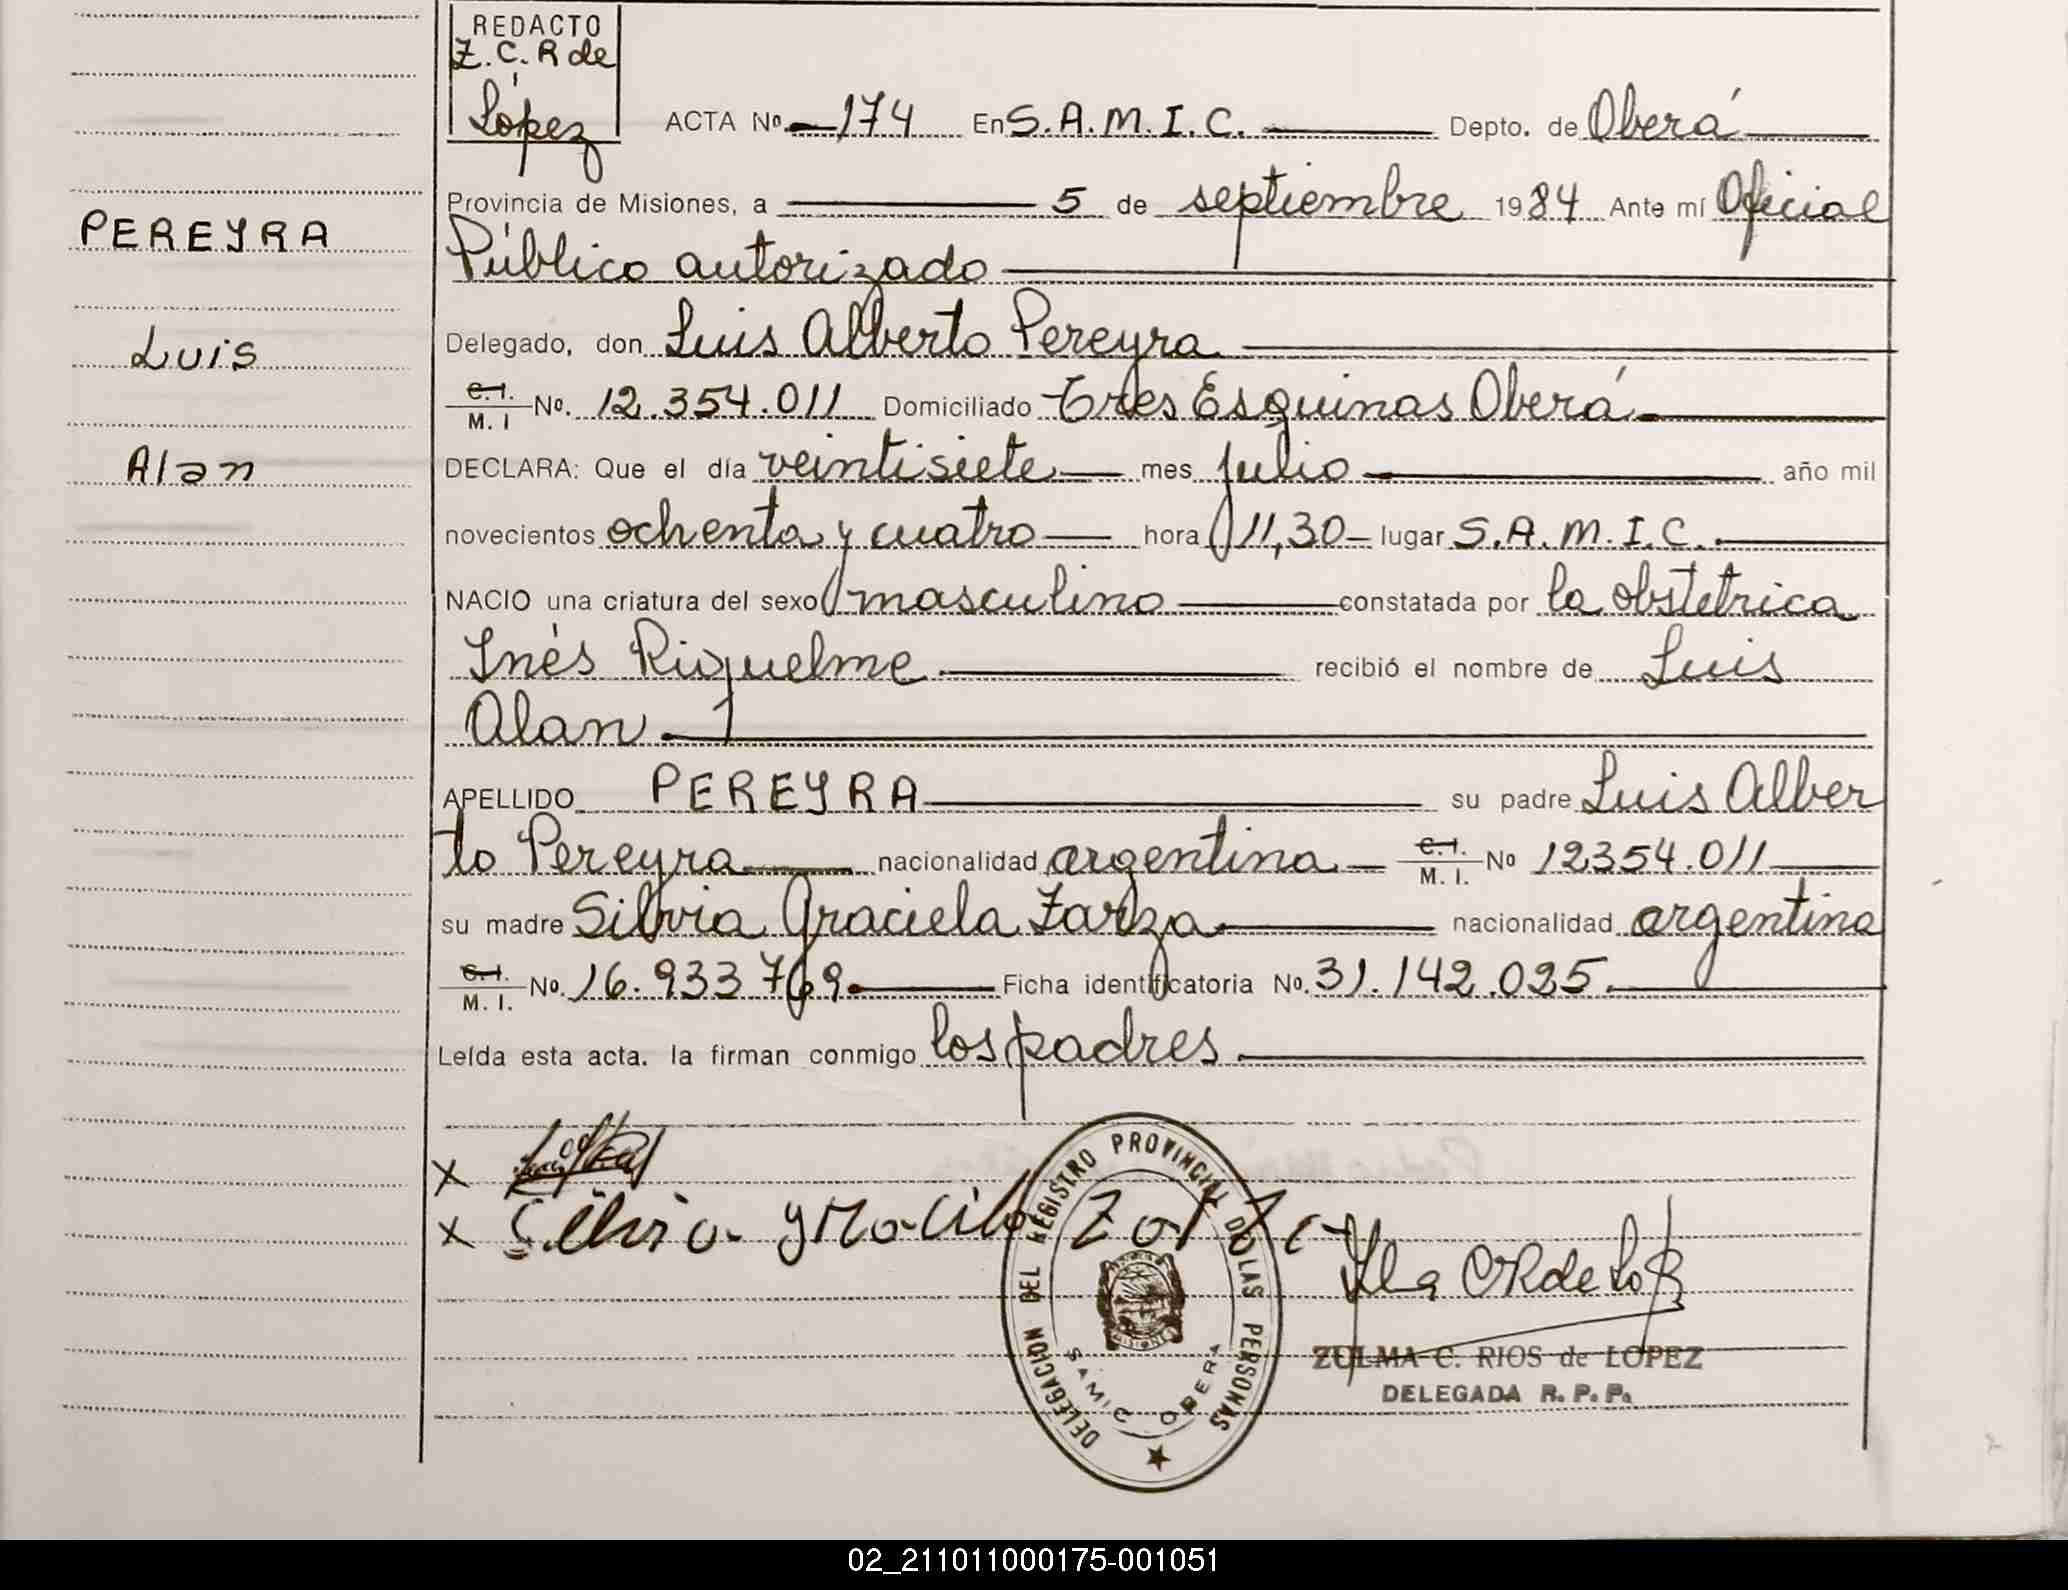 REDACTO
Z.C.R de
López
ACTA Nº 174 En S.A.M.I.C. Depto. de Oberá
Provincia de Misiones, a 5 de septiembre 1984 Ante mí Oficial
Público autorizado
Delegado, don Luis Alberto Pereyra
C.I. M.I Nº. 12.354.011 Domiciliado Tres Esquinas Oberá
DECLARA: Que el día veintisiete mes julio año mil
novecientos ochenta y cuatro hora 11,30 lugar S.A.M.I.C.
NACIO una criatura del sexo masculino constatada por la obstetrica
Inés Riquelme recibió el nombre de Luis
Alan
APELLIDO PEREYRA su padre Luis Alber
to Pereyra nacionalidad argentina C.I. M.I. Nº 12354.011
su madre Silvia Graciela Zarza nacionalidad argentina
C.I. M.I. Nº. 16.933.769 Ficha identificatoria Nº. 31.142.025
Leída esta acta. la firman conmigo los padres
PEREYRA
Luis
Alan
X
X Silvia Graciela Zarza
DELEGACION DEL REGISTRO PROVINCIAL DE LAS PERSONAS
MISIONES
SAMIC OBERA
ZULMA C. RIOS de LOPEZ
DELEGADA R.P.P.
02_211011000175-001051